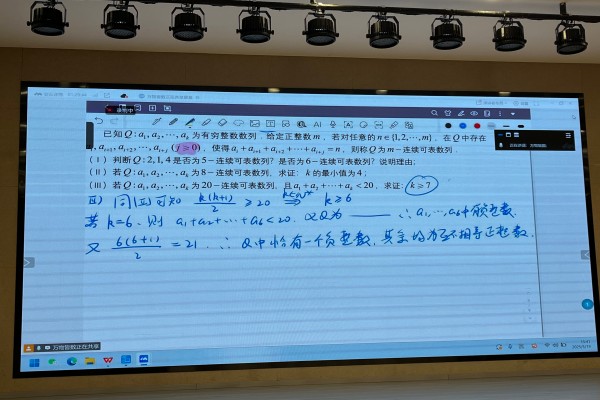 已知Q:a₁,a₂,⋯,aₖ为有穷整数数列，给定正整数m，若对任意的n∈{1,2,⋯,m}，在Q中存在
aᵢ₊₁,aᵢ₊₂,⋯,aᵢ₊ⱼ(j≥0)，使得aᵢ+aᵢ₊₁+aᵢ₊₂+⋯+aᵢ₊ⱼ=n，则称Q为m-连续可表数列.
(Ⅰ)判断Q:2,1,4是否为5-连续可表数列？是否为6-连续可表数列？说明理由;
(Ⅱ)若Q:a₁,a₂,⋯,aₖ为8-连续可表数列，求证：k的最小值为4;
(Ⅲ)若Q:a₁,a₂,⋯,aₖ为20-连续可表数列，且a₁+a₂+⋯+aₖ<20，求证：k≥7
Ⅲ) 同(Ⅱ)可知 k(k+1)/2 ≥20 k∈N* ⇒ k≥6
若k=6，则 a₁+a₂+⋯+a₆<20. 又Q为 —— ∴a₁,⋯,a₆中有负整数.
又 6(6+1)/2 =21. ∴ Q中恰有一个负整数，其余均为互不相等正整数.
万物皆数正在共享